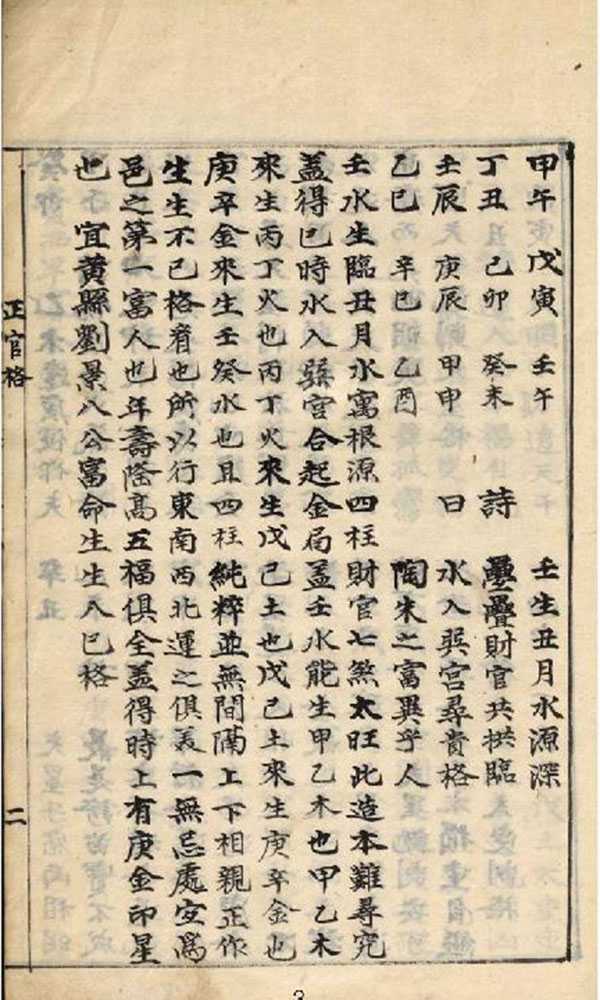 甲午 戊寅 壬午 壬生丑月水源深
丁丑 己卯 癸未 詩 疊疊財官共拱臨
壬辰 庚辰 甲申 曰 水入巽宮尋貴格
乙巳 辛巳 乙酉 陶朱之富異乎人
壬水生臨丑月水寓根源四柱財官七煞太旺此造本難尋究
蓋得巳時水入巽宮合起金局蓋壬水能生甲乙木也甲乙木
來生丙丁火也丙丁火來生戊己土也戊己土來生庚辛金也
庚辛金來生壬癸水也且四柱純粹並無間隔上下相親正作
生生不已格看也所以行東南西北運之俱美一無忌處安爲
邑之第一富人也年壽隆高五福俱全蓋得時上有庚金印星
也 宜黃縣劉景八公富命生生八巳格
正官格
二
3